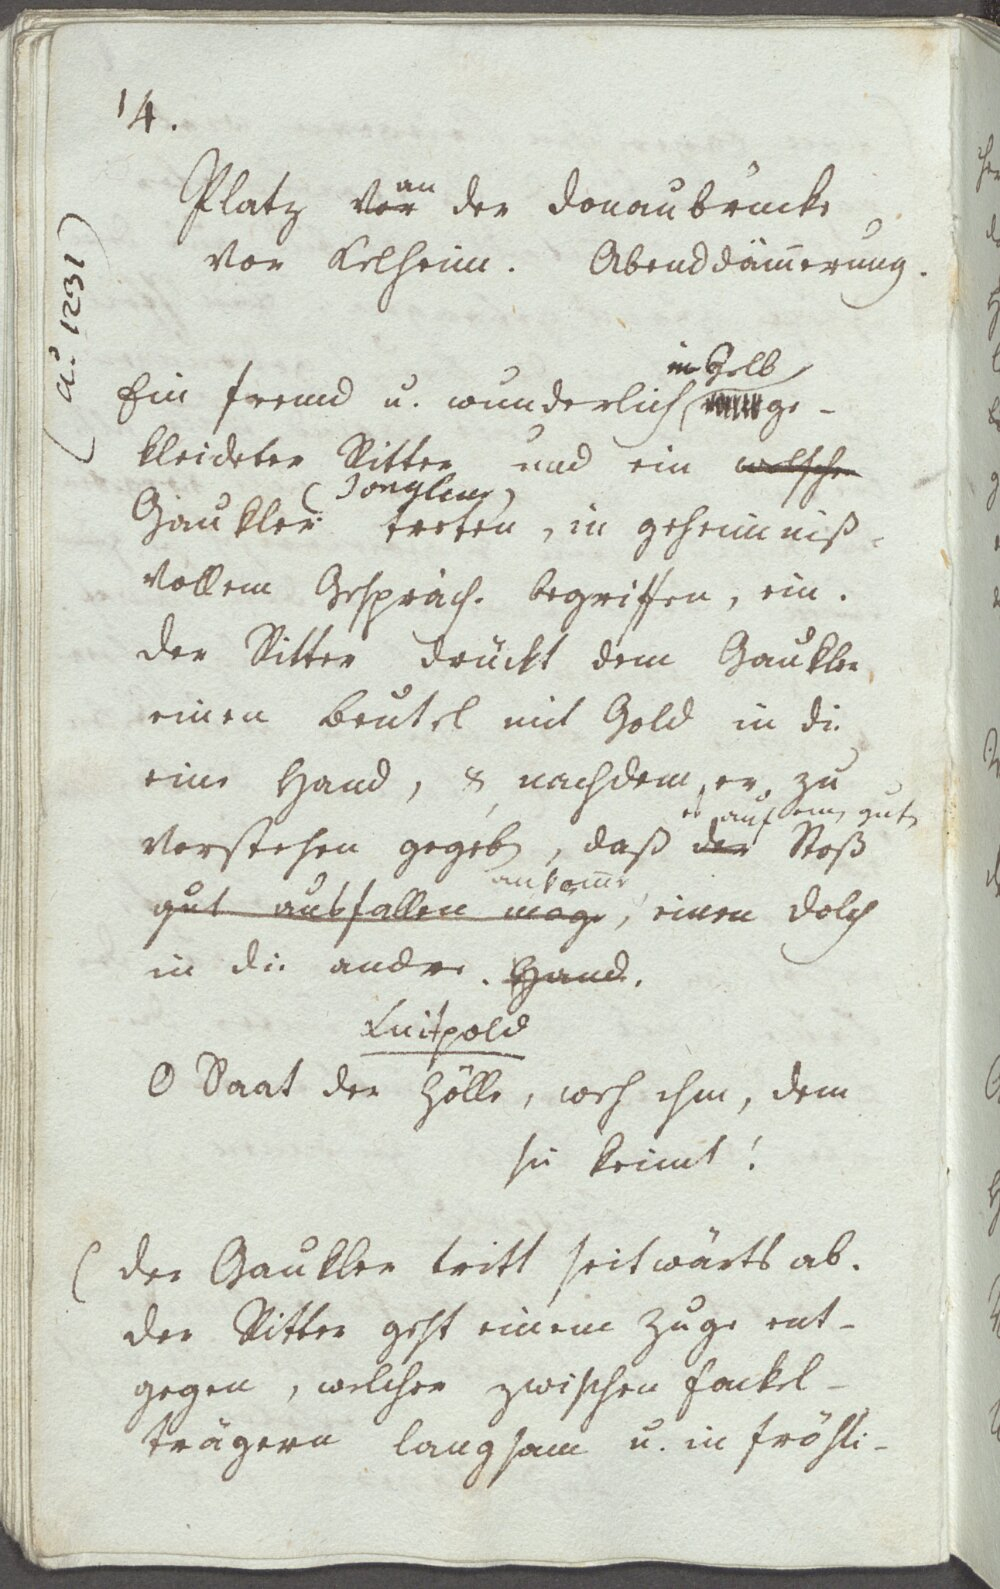 14.
(a.° 1231)
an
Platz vor der Donaubrücke
vor Kelheim. Abenddämerung.
in Gelb
Ein fremd u. wunderlich ge-
kleideter Ritter und ein welscher
(Jongleur)
Gaukler treten, in geheimniß-
vollem Gespräch begriffen, ein.
Der Ritter drückt dem Gaukler
einen Beutel mit Gold in die
eine Hand, & nachdem er zu
es auf einen guten
verstehen gegeben, daß der Stoß
ankome
gut ausfallen möge, einen Dolch
in die andre. Hand.
Luitpold
O Saat der Hölle, weh ihm, dem
sie keimt!
(Der Gaukler tritt seitwärts ab.
Der Ritter geht einem Zuge ent-
gegen, welcher zwischen Fackel-
trägern langsam u. in fröhli-